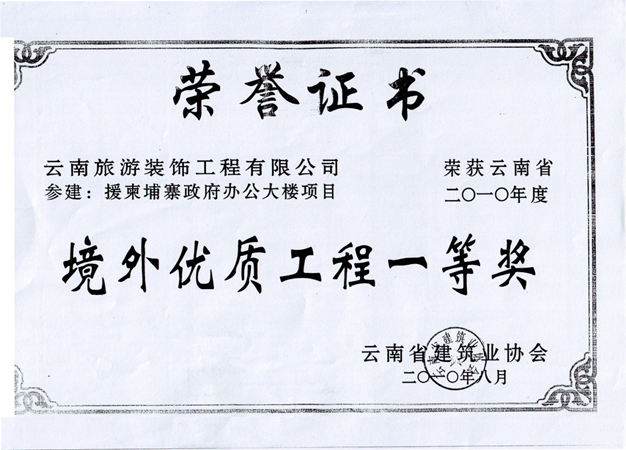 荣誉证书
云南旅游装饰工程有限公司 荣获云南省
参建：援柬埔寨政府办公大楼项目 二〇一〇年度
境外优质工程一等奖
云南省建筑业协会
二〇一〇年八月